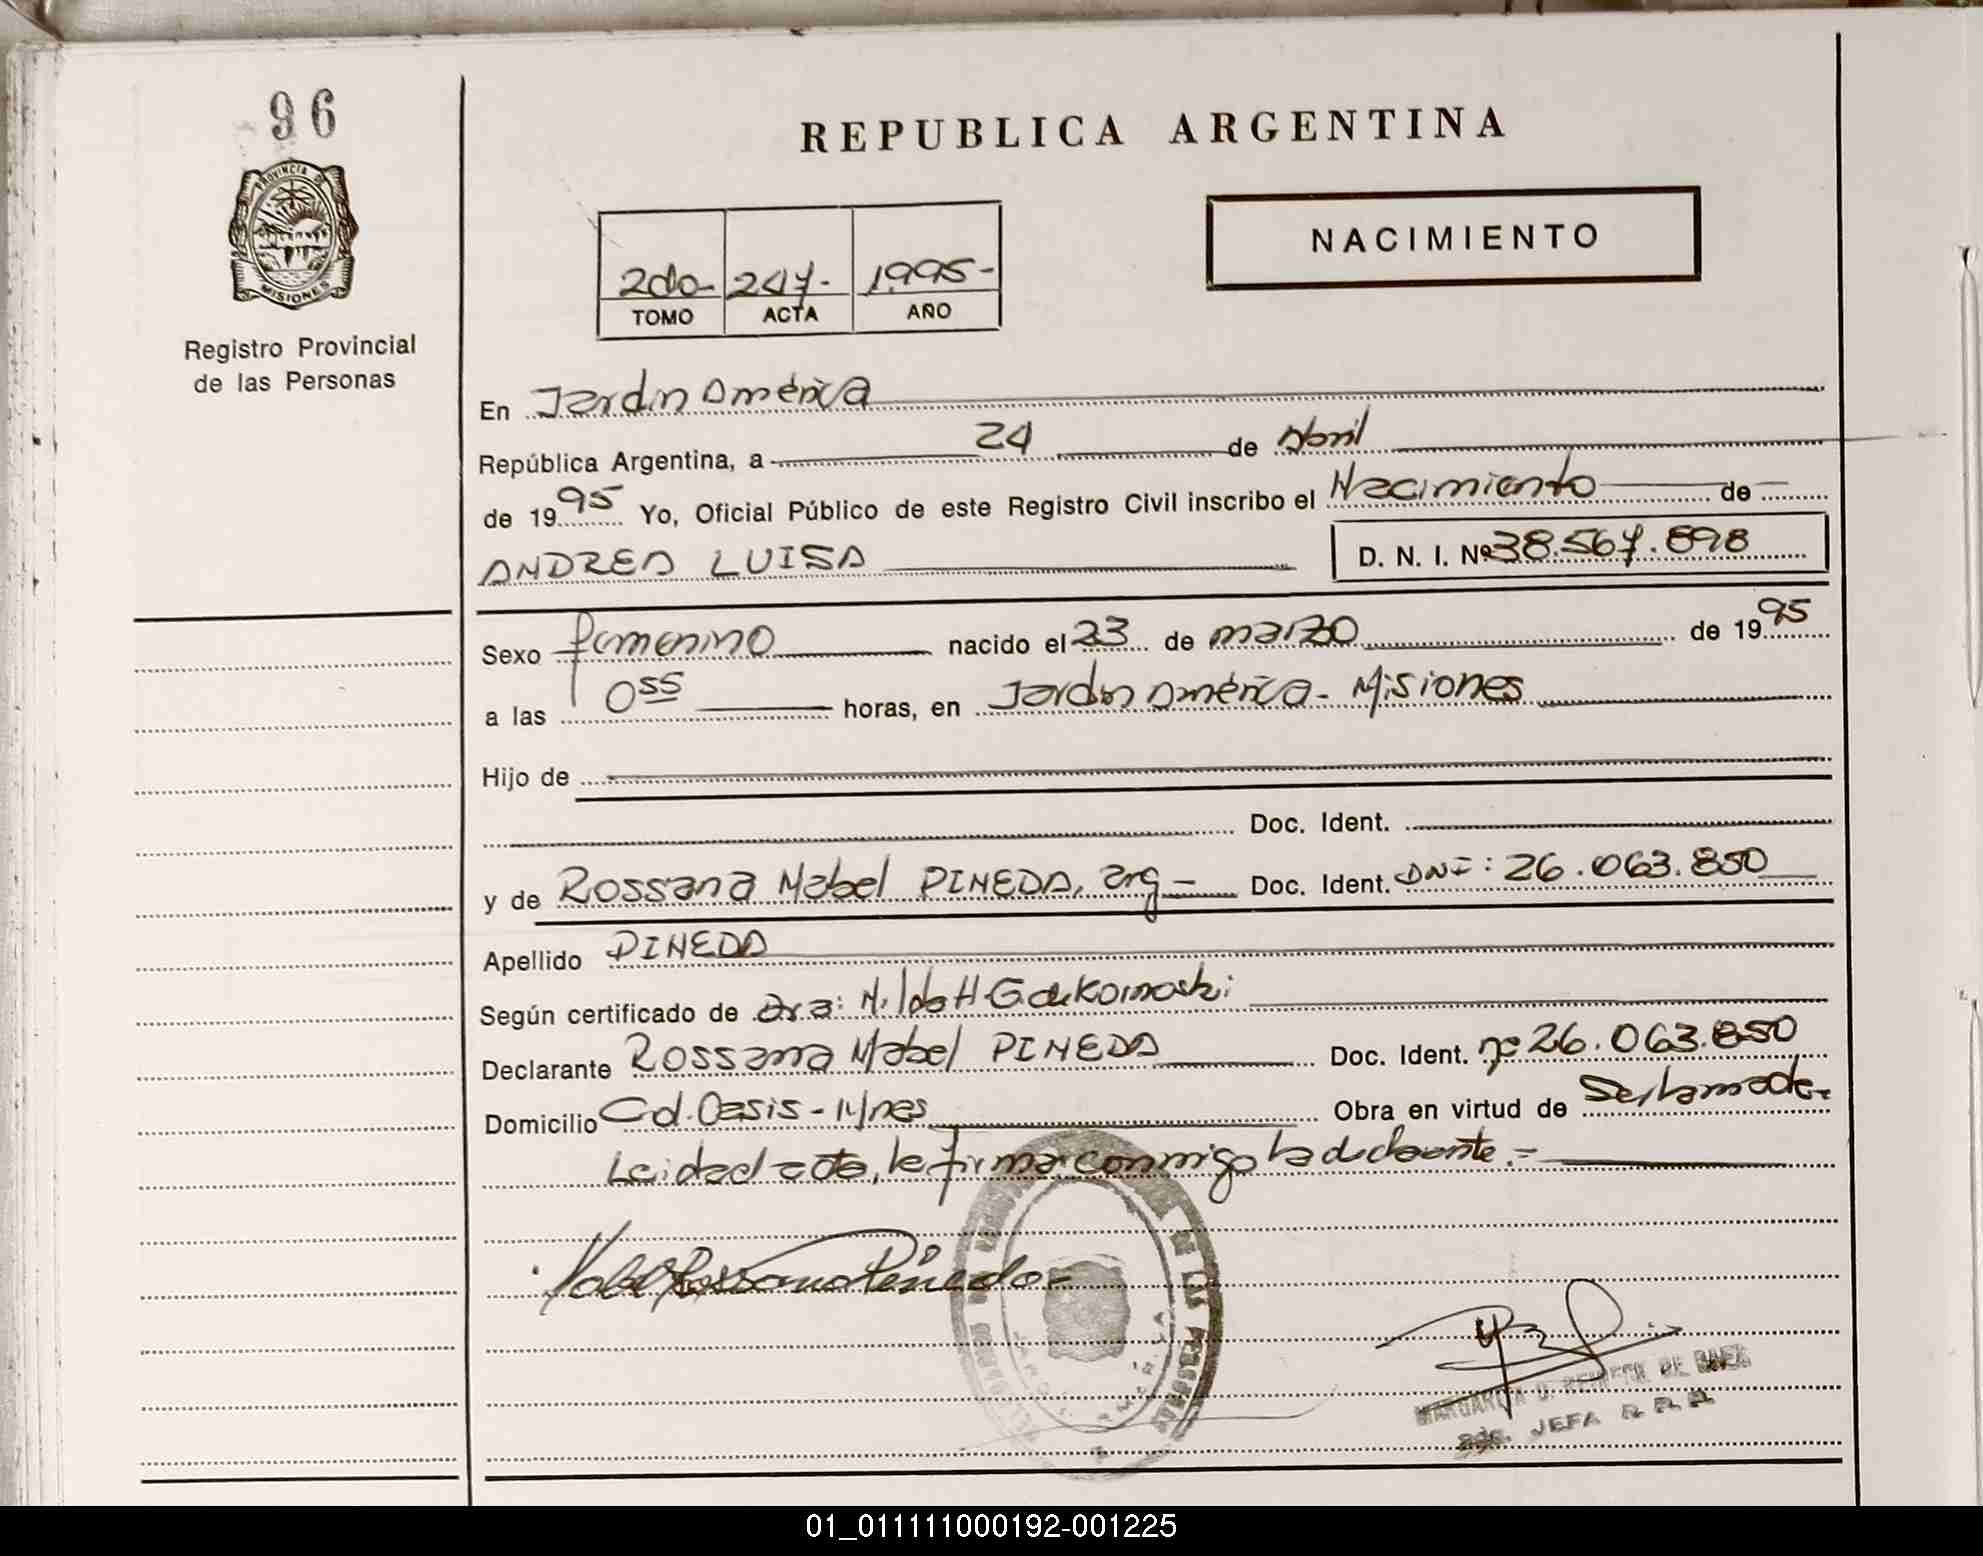 96
PROVINCIA DE
MISIONES
Registro Provincial
de las Personas
REPUBLICA ARGENTINA
NACIMIENTO
2do- 247- 1.995-
TOMO ACTA AÑO
En Jardin América
República Argentina, a 24 de Abril
de 1995 Yo, Oficial Público de este Registro Civil inscribo el Nacimiento de
ANDREA LUISA D. N. I. Nº 38.567.898
Sexo femenino nacido el 23 de marzo de 1995
a las 0 55 horas, en Jardin América - Misiones
Hijo de
Doc. Ident.
y de Rossana Mabel PINEDA, arg - Doc. Ident. DNI: 26.063.850
Apellido PINEDA
Según certificado de Dra: Nilda H
Declarante Rossana Mabel PINEDA Doc. Ident. nº 26.063.850
Domicilio Cd. Oasis - Mnes Obra en virtud de
Leida el acta, la firma conmigo la declarante.-
Mabel Rossana Pineda-
DE LAS PERSONAS
MARGARITA DE BAEZ
JEFA R. P. P.
01_011111000192-001225